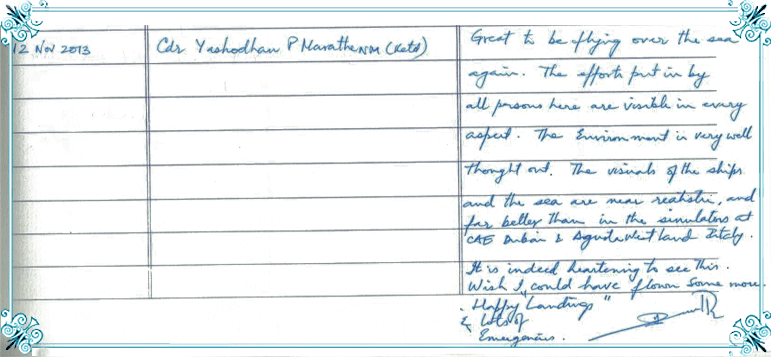 12 Nov 2013
Cdr Yashodhan P Marathe NM (Retd)
Great to be flying over the sea
again. The efforts put in by
all persons here are visible in every
aspect. The Environment is very well
thought out. The visuals of the ships
and the sea are near realistic, and
far better than in the simulators at
CAE Dubai & Agusta Westland Italy.
It is indeed heartening to see this.
Wish I could have flown some more.
"Happy Landings"
& lots of
Emergencies.